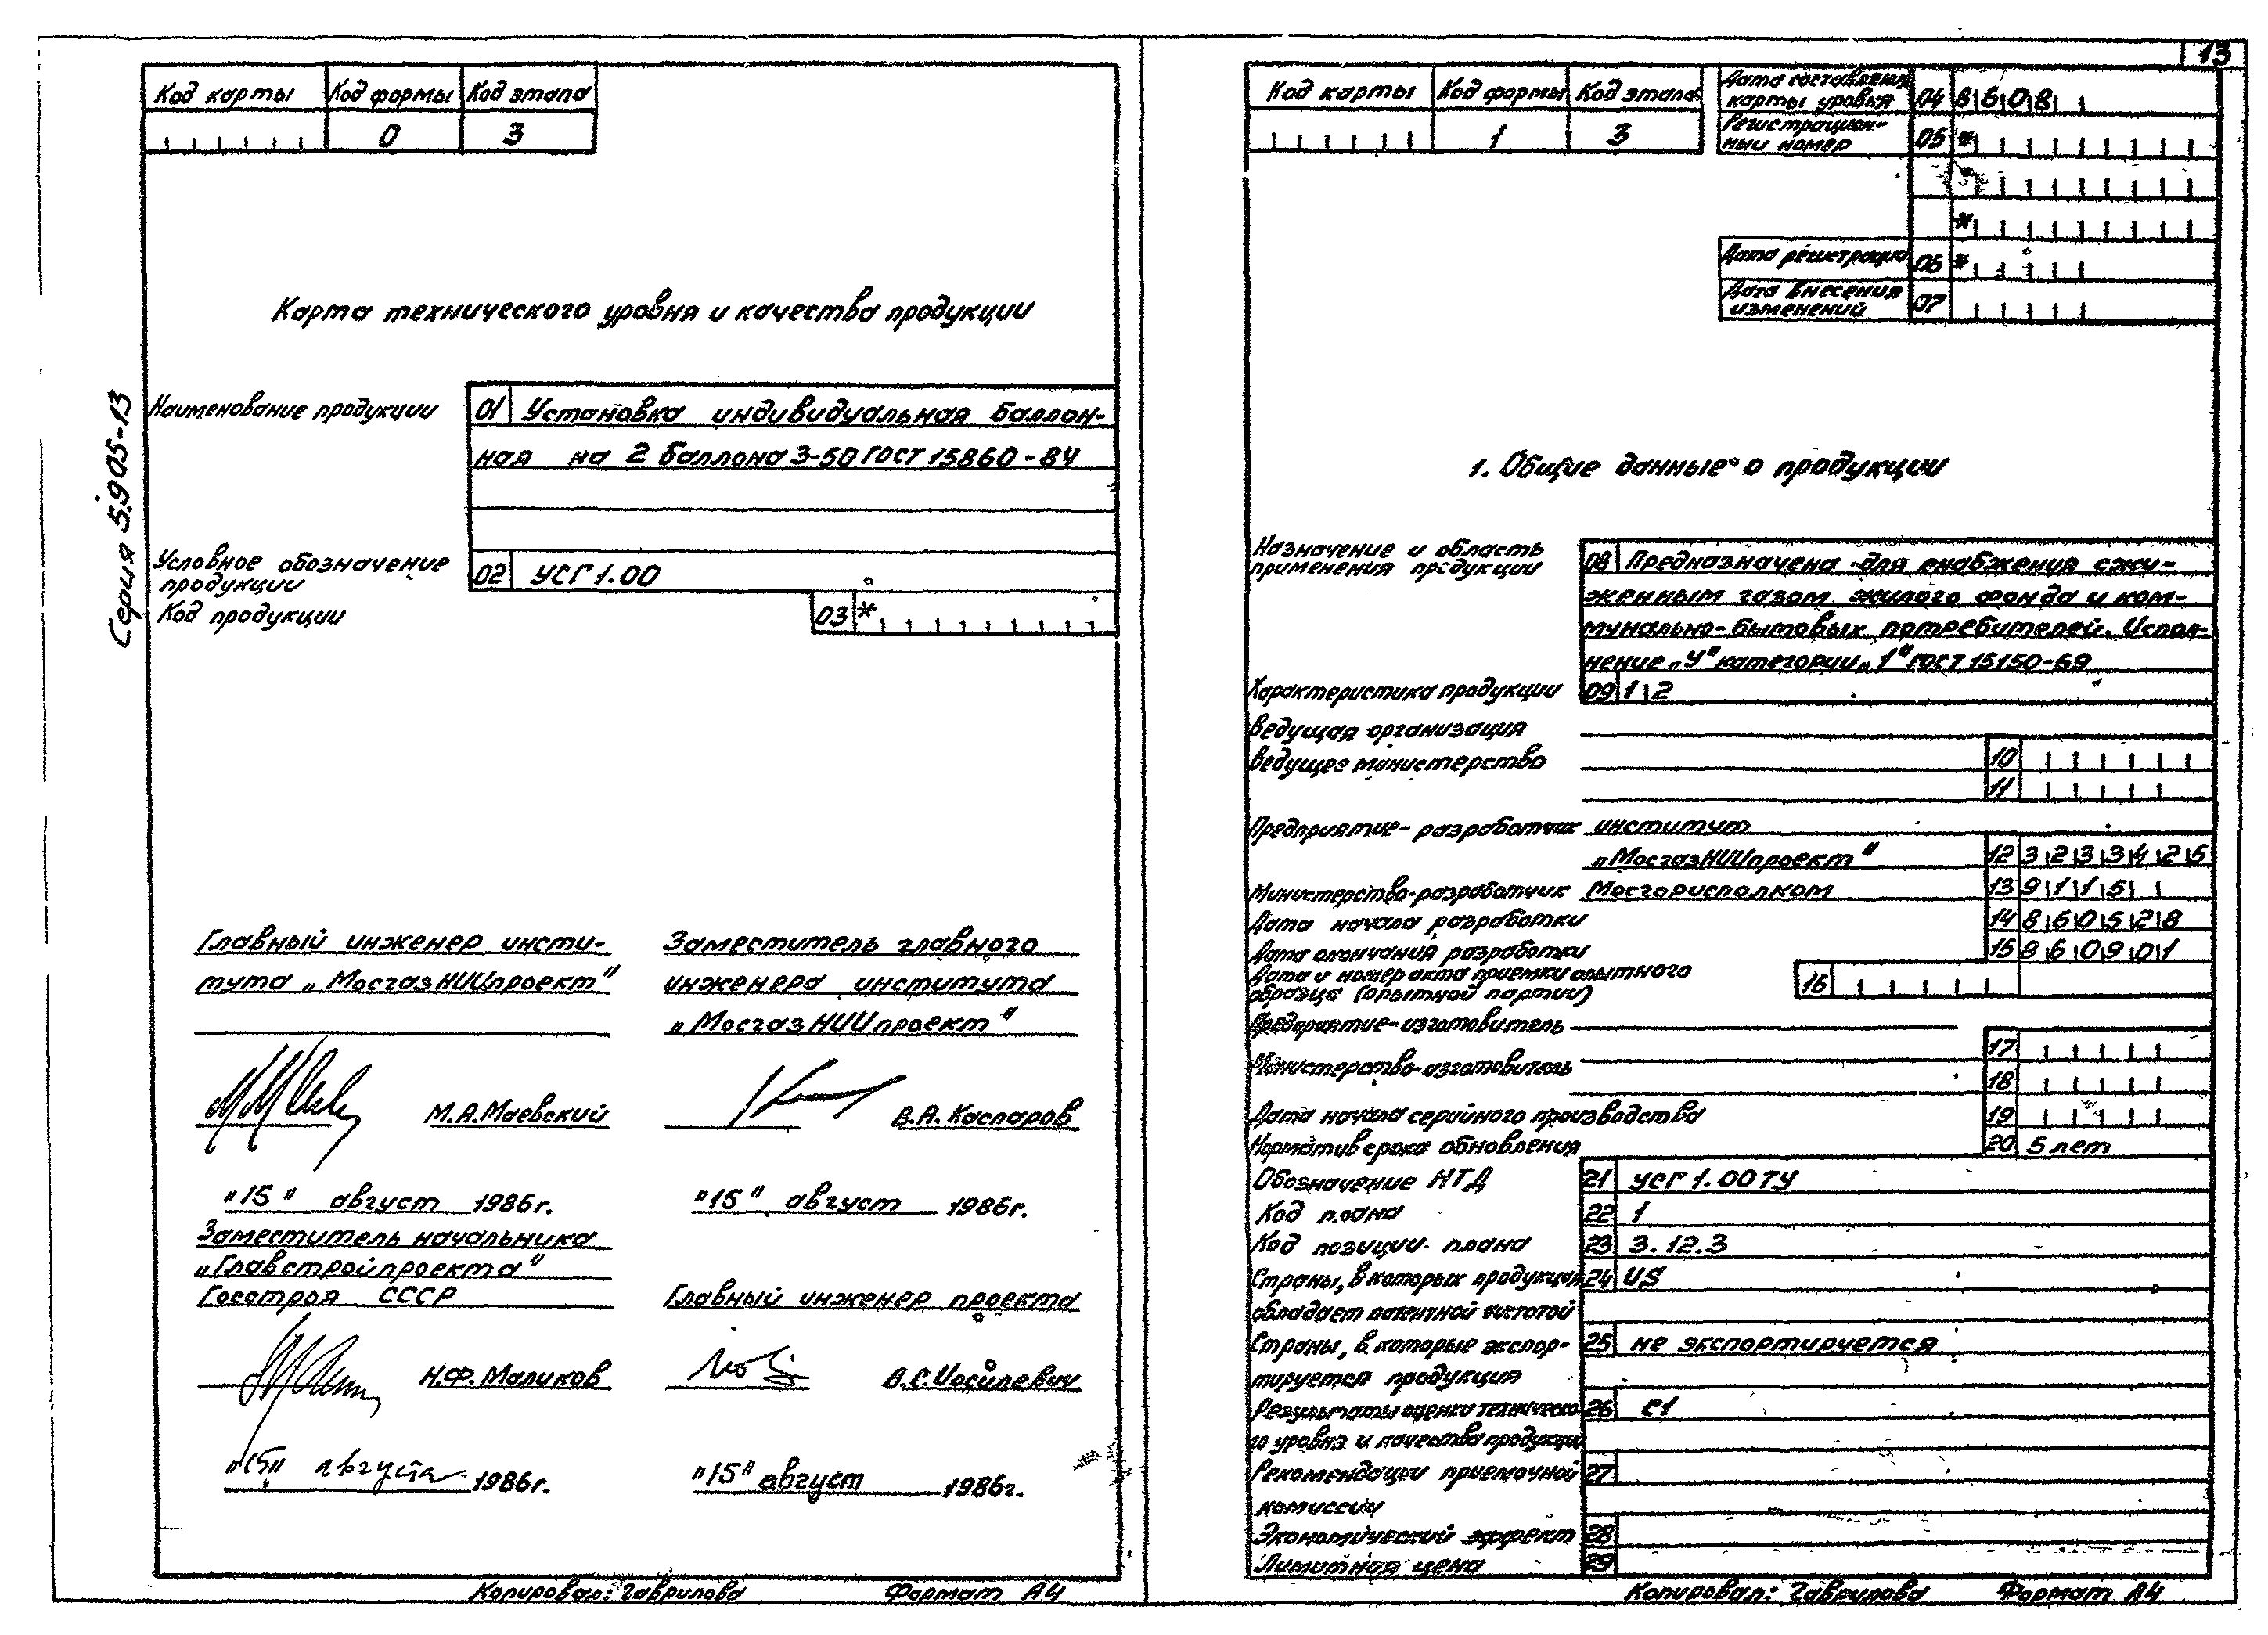 Серия 5.905-13
Код карты Код формы Код этапа
0 3
Карта технического уровня и качества продукции
Наименование продукции 01 Установка индивидуальная баллон-
ная на 2 баллона 3-50 ГОСТ 15860-84
Условное обозначение
продукции 02 УСГ 1.00
Код продукции 03 *
Главный инженер инсти-
тута „МосгазНИИпроект"
М.А.Маевский
"15" август 1986г.
Заместитель главного
инженера института
„МосгазНИИпроект"
В.А. Каспаров
"15" август 1986г.
Заместитель начальника
„Главстройпроекта"
Госстроя СССР
Н.Ф. Маликов
"15" августа 1986г.
Главный инженер проекта
В.С.Иосилевич
"15" август 1986г.
Копировал: Гаврилова Формат А4
13
Код карты Код формы Код этапа
1 3
Дата составления
карты уровня 04 8608
Регистрацион-
ный номер 05 *
*
*
Дата регистрации 06 *
Дата внесения
изменений 07
1. Общие данные о продукции
Назначение и область
применения продукции
08 Предназначена для снабжения сжи-
женным газом жилого фонда и ком-
мунально-бытовых потребителей. Испол-
нение „У" категории „1" ГОСТ 15150-69
Характеристика продукции 09 1 2
Ведущая организация
10
Ведущее министерство
11
Предприятие-разработчик институт
„МосгазНИИпроект" 12 3233425
Министерство-разработчик Мосгорисполком 13 9115
Дата начала разработки 14 860528
Дата окончания разработки 15 860901
Дата и номер акта приемки опытного
образца (опытной партии) 16
Предприятие-изготовитель
17
Министерство-изготовитель
18
Дата начала серийного производства 19
Норматив срока обновления 20 5 лет
Обозначение НТД 21 УСГ 1.00 ТУ
Код плана 22 1
Код позиции плана 23 3.12.3
Страны, в которых продукция 24 US
обладает патентной чистотой
Страны, в которые экспор- 25 не экспортируется
тируется продукция
Результаты оценки техническо- 26 С1
го уровня и качества продукции
Рекомендации приемочной 27
комиссии
Экономический эффект 28
Лимитная цена 29
Копировал: Гаврилова Формат А4